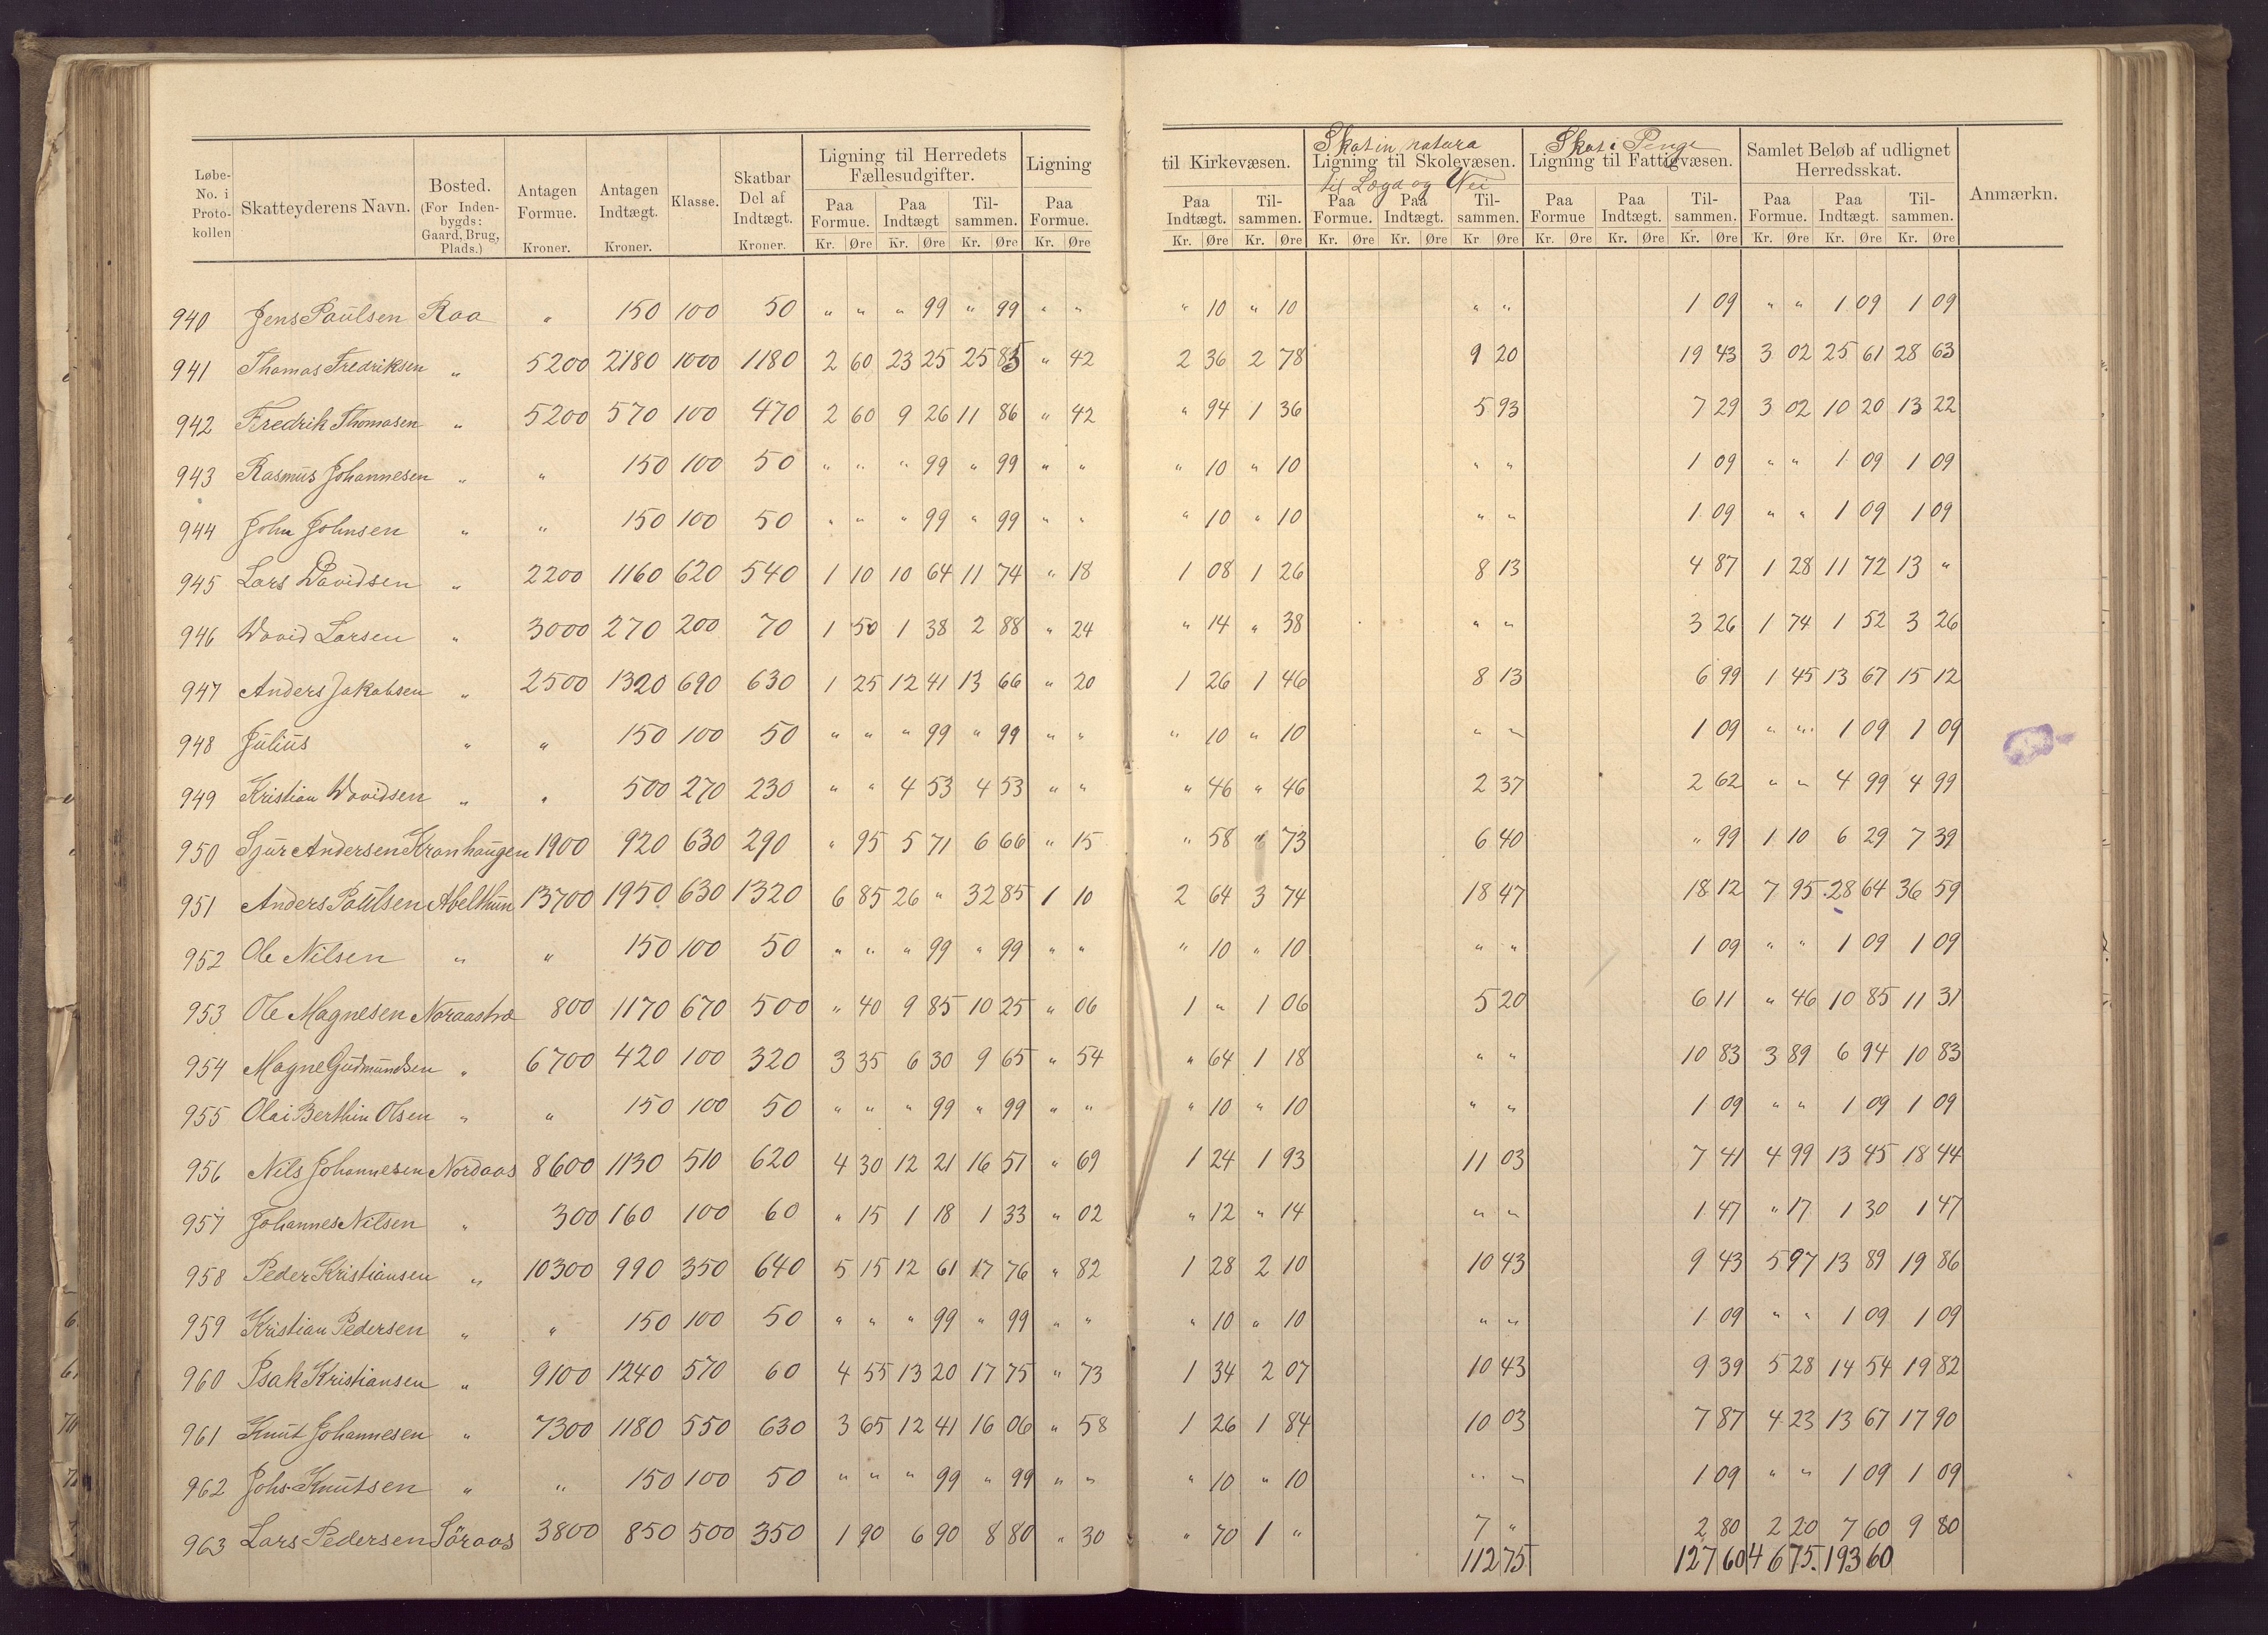 Løbe-No. i Proto-kollen | Skatteyderens Navn. | Bosted. (For Inden-bygds: Gaard, Brug, Plads.) | Antagen Formue. Kroner. | Antagen Indtægt. Kroner. | Klasse. | Skatbar Del af Indtægt. Kroner. | Ligning til Herredets Fællesudgifter. Paa Formue. Kr. Øre | Paa Indtægt Kr. Øre | Til-sammen. Kr. Øre | Ligning Paa Formue. Kr. Øre | til Kirkevæsen. Paa Indtægt. Kr. Øre | Til-sammen. Kr. Øre | Skat in natura Ligning til Skolevæsen. til Lægd og Vei Paa Formue. Kr. Øre | Paa Indtægt. Kr. Øre | Til-sammen. Kr. Øre | Skat i Penge Ligning til Fattigvæsen. Paa Formue Kr. Øre | Paa Indtægt. Kr. Øre | Til-sammen. Kr. Øre | Samlet Beløb af udlignet Herredsskat. Paa Formue. Kr. Øre | Paa Indtægt. Kr. Øre | Til-sammen. Kr. Øre | Anmærkn.
940 Jens Paulsen Raa " 150 100 50 " " " 99 " 99 " " " 10 " 10 " " 1 09 " " 1 09 1 09
941 Thomas Fredriksen " 5200 2180 1000 1180 2 60 23 25 25 85 " 42 2 36 2 78 9 20 19 43 3 02 25 61 28 63
942 Fredrik Thomasen " 5200 570 100 470 2 60 9 26 11 86 " 42 " 94 1 36 5 93 7 29 3 02 10 20 13 22
943 Rasmus Johannesen " " 150 100 50 " " " 99 " 99 " " " 10 " 10 " " 1 09 " " 1 09 1 09
944 John Johnsen " " 150 100 50 " " " 99 " 99 " " " 10 " 10 " " 1 09 " " 1 09 1 09
945 Lars Davidsen " 2200 1160 620 540 1 10 10 64 11 74 " 18 1 08 1 26 8 13 4 87 1 28 11 72 13 "
946 David Larsen " 3000 270 200 70 1 50 1 38 2 88 " 24 " 14 " 38 " " 3 26 1 74 1 52 3 26
947 Anders Jakobsen " 2500 1320 690 630 1 25 12 41 13 66 " 20 1 26 1 46 8 13 6 99 1 45 13 67 15 12
948 Julius " " 150 100 50 " " " 99 " 99 " " " 10 " 10 " " 1 09 " " 1 09 1 09
949 Kristian Davidsen " " 500 270 230 " " 4 53 4 53 " " " 46 " 46 2 37 2 62 " " 4 99 4 99
950 Sjur Andersen Kranhaugen 1900 920 630 290 " 95 5 71 6 66 " 15 " 58 " 73 6 40 " 99 1 10 6 29 7 39
951 Anders Paulsen Abelthun 13700 1950 630 1320 6 85 26 " 32 85 1 10 2 64 3 74 18 47 18 12 7 95 28 64 36 59
952 Ole Nilsen " " 150 100 50 " " " 99 " 99 " " " 10 " 10 " " 1 09 " " 1 09 1 09
953 Ole Magnesen Noraastræ 800 1170 670 500 " 40 9 85 10 25 " 06 1 " 1 06 5 20 6 11 " 46 10 85 11 31
954 Magne Gudmundsen " 6700 420 100 320 3 35 6 30 9 65 " 54 " 64 1 18 " " 10 83 3 89 6 94 10 83
955 Olai Berthin Olsen " " 150 100 50 " " " 99 " 99 " " " 10 " 10 " " 1 09 " " 1 09 1 09
956 Nils Johannesen Nordaas 8600 1130 510 620 4 30 12 21 16 51 " 69 1 24 1 93 11 03 7 41 4 99 13 45 18 44
957 Johannes Nilsen " 300 160 100 60 " 15 1 18 1 33 " 02 " 12 " 14 " " 1 47 " 17 1 30 1 47
958 Peder Kristiansen " 10300 990 350 640 5 15 12 61 17 76 " 82 1 28 2 10 10 43 9 43 5 97 13 89 19 86
959 Kristian Pedersen " " 150 100 50 " " " 99 " 99 " " " 10 " 10 " " 1 09 " " 1 09 1 09
960 Isak Kristiansen " 9100 1240 570 60 4 55 13 20 17 75 " 73 1 34 2 07 10 43 9 39 5 28 14 54 19 82
961 Knut Johannesen " 7300 1180 550 630 3 65 12 41 16 06 " 58 1 26 1 84 10 03 7 87 4 23 13 67 17 90
962 Johs. Knutsen " " 150 100 50 " " " 99 " 99 " " " 10 " 10 " " 1 09 " " 1 09 1 09
963 Lars Pedersen Söraas 3800 850 500 350 1 90 6 90 8 80 " 30 " 70 1 " 7 " 2 80 2 20 7 60 9 80
112 75 127 60 46 75. 193 60